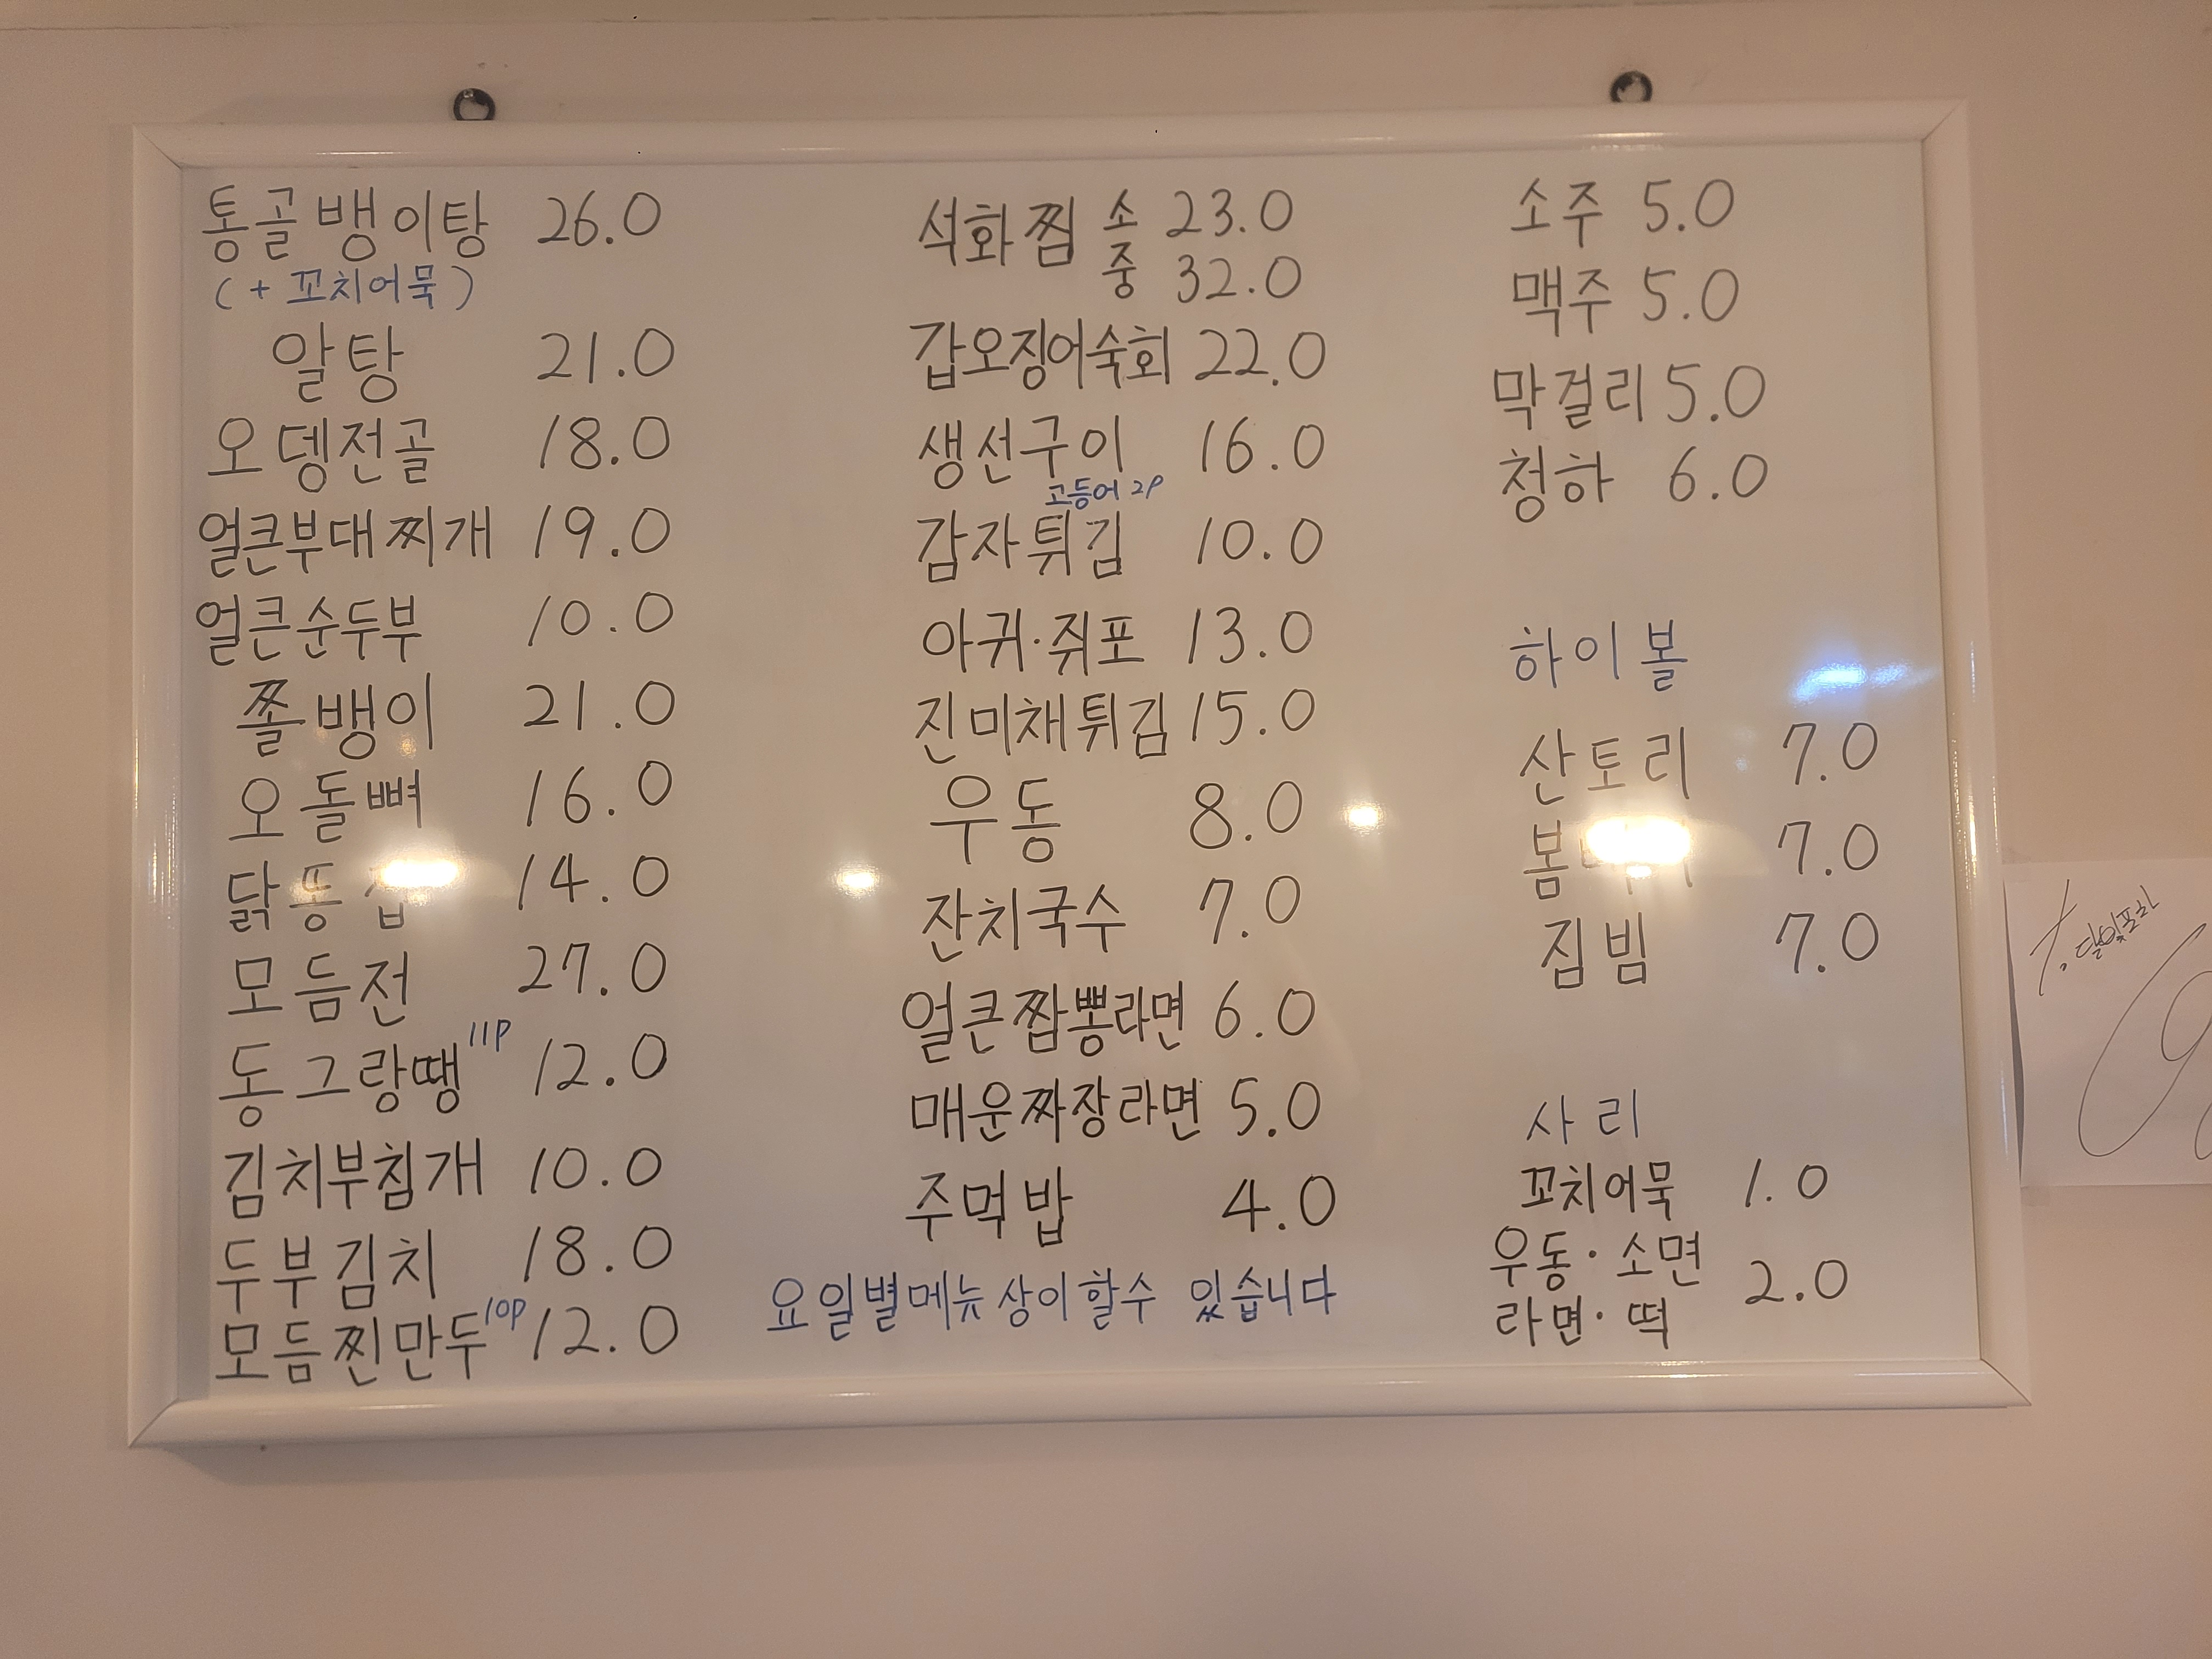 통골뱅이탕 26.0
(+ 꼬치어묵)
알탕 21.0
오뎅전골 18.0
얼큰부대찌개 19.0
얼큰순두부 10.0
쫄뱅이 21.0
오돌뼈 16.0
닭똥집 14.0
모듬전 27.0
동그랑땡 11P 12.0
김치부침개 10.0
두부김치 18.0
모듬찐만두 10P 12.0
석화찜 소 23.0
중 32.0
갑오징어숙회 22.0
생선구이 16.0
고등어 2P
감자튀김 10.0
아귀·쥐포 13.0
진미채튀김 15.0
우동 8.0
잔치국수 7.0
얼큰짬뽕라면 6.0
매운짜장라면 5.0
주먹밥 4.0
요일별메뉴 상이할수 있습니다
소주 5.0
맥주 5.0
막걸리 5.0
청하 6.0
하이볼
산토리 7.0
7.0
짐빔 7.0
사리
꼬치어묵 1.0
우동·소면
라면·떡 2.0